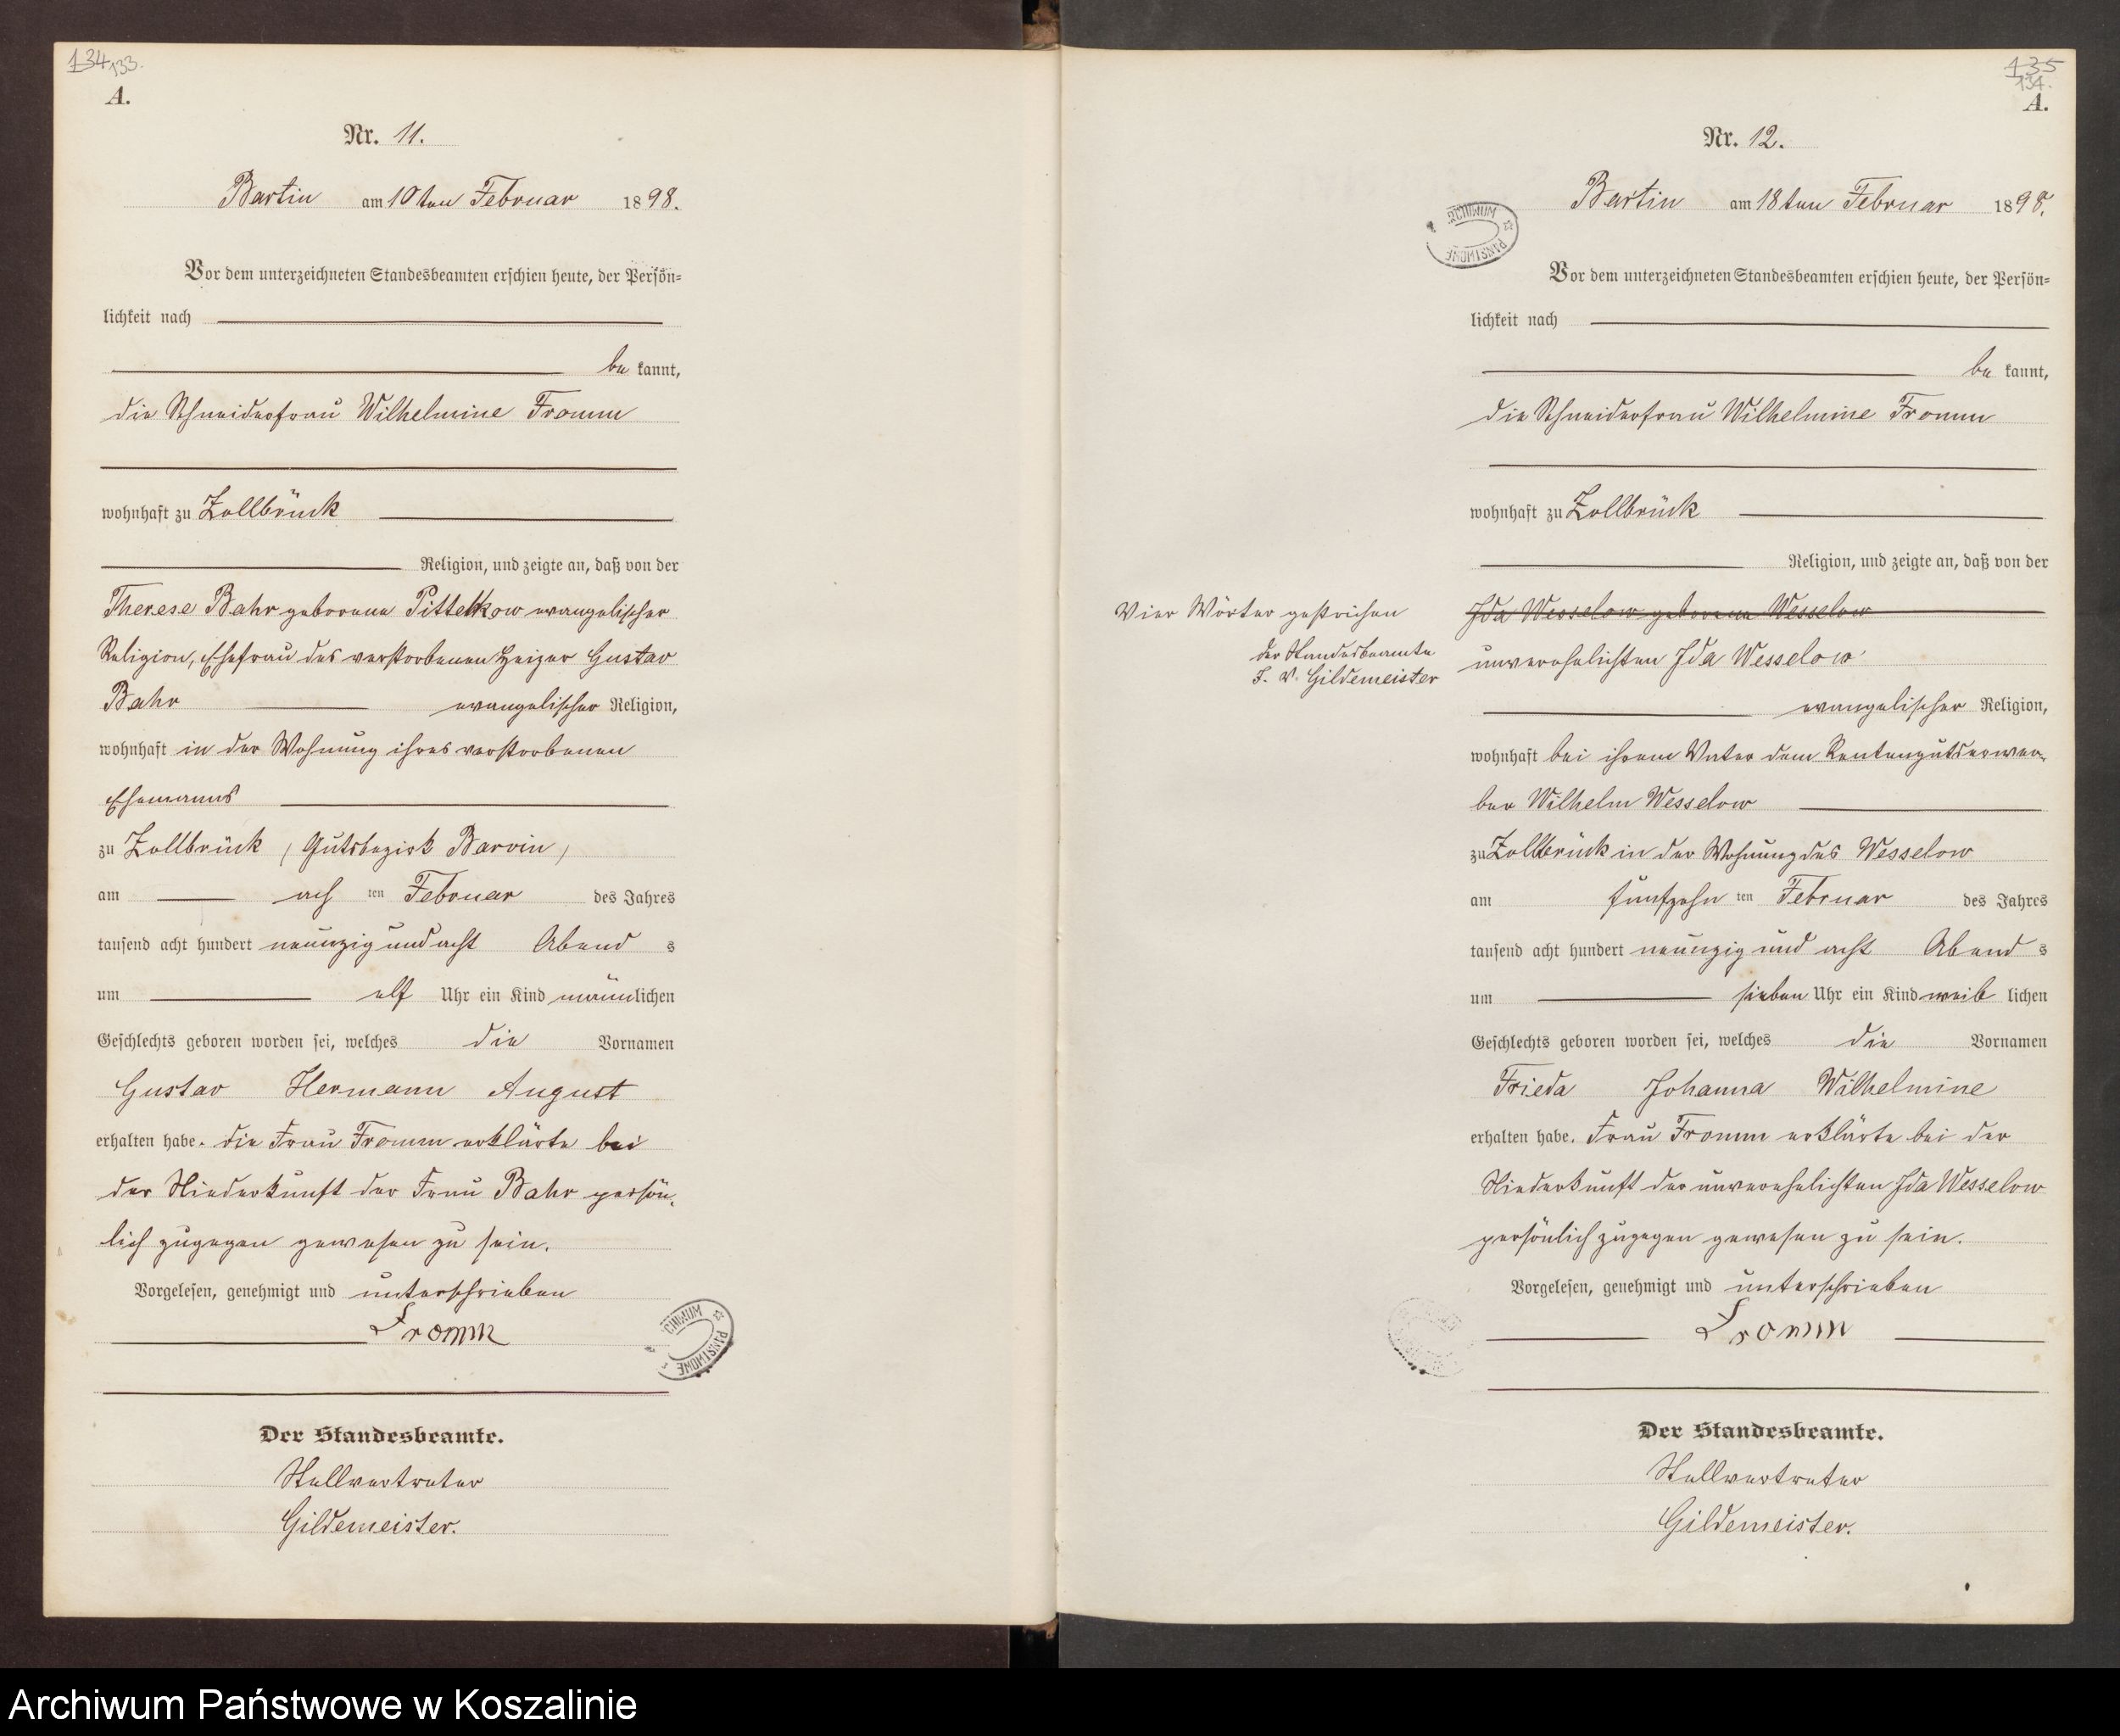 134 133.
A.
Nr. 11.
Bartin am 10ten Februar 1898.
Vor dem unterzeichneten Standesbeamten erschien heute, der Persön=
lichkeit nach
be kannt,
die Schneiderfrau Wilhelmine Fromm
wohnhaft zu Zollbrück
Religion, und zeigte an, daß von der
Therese Bahr geborene Pittelkow evangelischer
Religion, Ehefrau des verstorbenen Heizer Gustav
Bahr evangelischer Religion,
wohnhaft in der Wohnung ihres verstorbenen
Ehemanns
zu Zollbrück (Gutsbezirk Barvin)
am ach ten Februar des Jahres
tausend acht hundert neunzig und acht Abend s
um elf Uhr ein Kind männlichen
Geschlechts geboren worden sei, welches die Vornamen
Gustav Hermann August
erhalten habe. die Frau Fromm erklärte bei
der Niederkunft der Frau Bahr persön-
lich zugegen gewesen zu sein.
Vorgelesen, genehmigt und unterschrieben
Fromm
CHIWUM PAŃSTWOWE
Der Standesbeamte.
Stellvertreter
Gildemeister.
135
134.
A.
Nr. 12.
Bartin am 18ten Februar 1898.
RCHIWUM PAŃSTWOWE
Vor dem unterzeichneten Standesbeamten erschien heute, der Persön=
lichkeit nach
be kannt,
die Schneiderfrau Wilhelmine Fromm
wohnhaft zu Zollbrück
Religion, und zeigte an, daß von der
Vier Wörter gestrichen
der Standesbeamte
I. V. Gildemeister
Ida Wesselow geborene Wesselow
unverehelichten Ida Wesselow
evangelischer Religion,
wohnhaft bei ihrem Vater dem Rentengutserwer-
ber Wilhelm Wesselow
zu Zollbrück in der Wohnung des Wesselow
am fünfzehn ten Februar des Jahres
tausend acht hundert neunzig und acht Abend s
um sieben Uhr ein Kind weib lichen
Geschlechts geboren worden sei, welches die Vornamen
Frieda Johanna Wilhelmine
erhalten habe. Frau Fromm erklärte bei der
Niederkunft der unverehelichten Ida Wesselow
persönlich zugegen gewesen zu sein.
Vorgelesen, genehmigt und unterschrieben
Fromm
Der Standesbeamte.
Stellvertreter
Gildemeister.
Archiwum Państwowe w Koszalinie